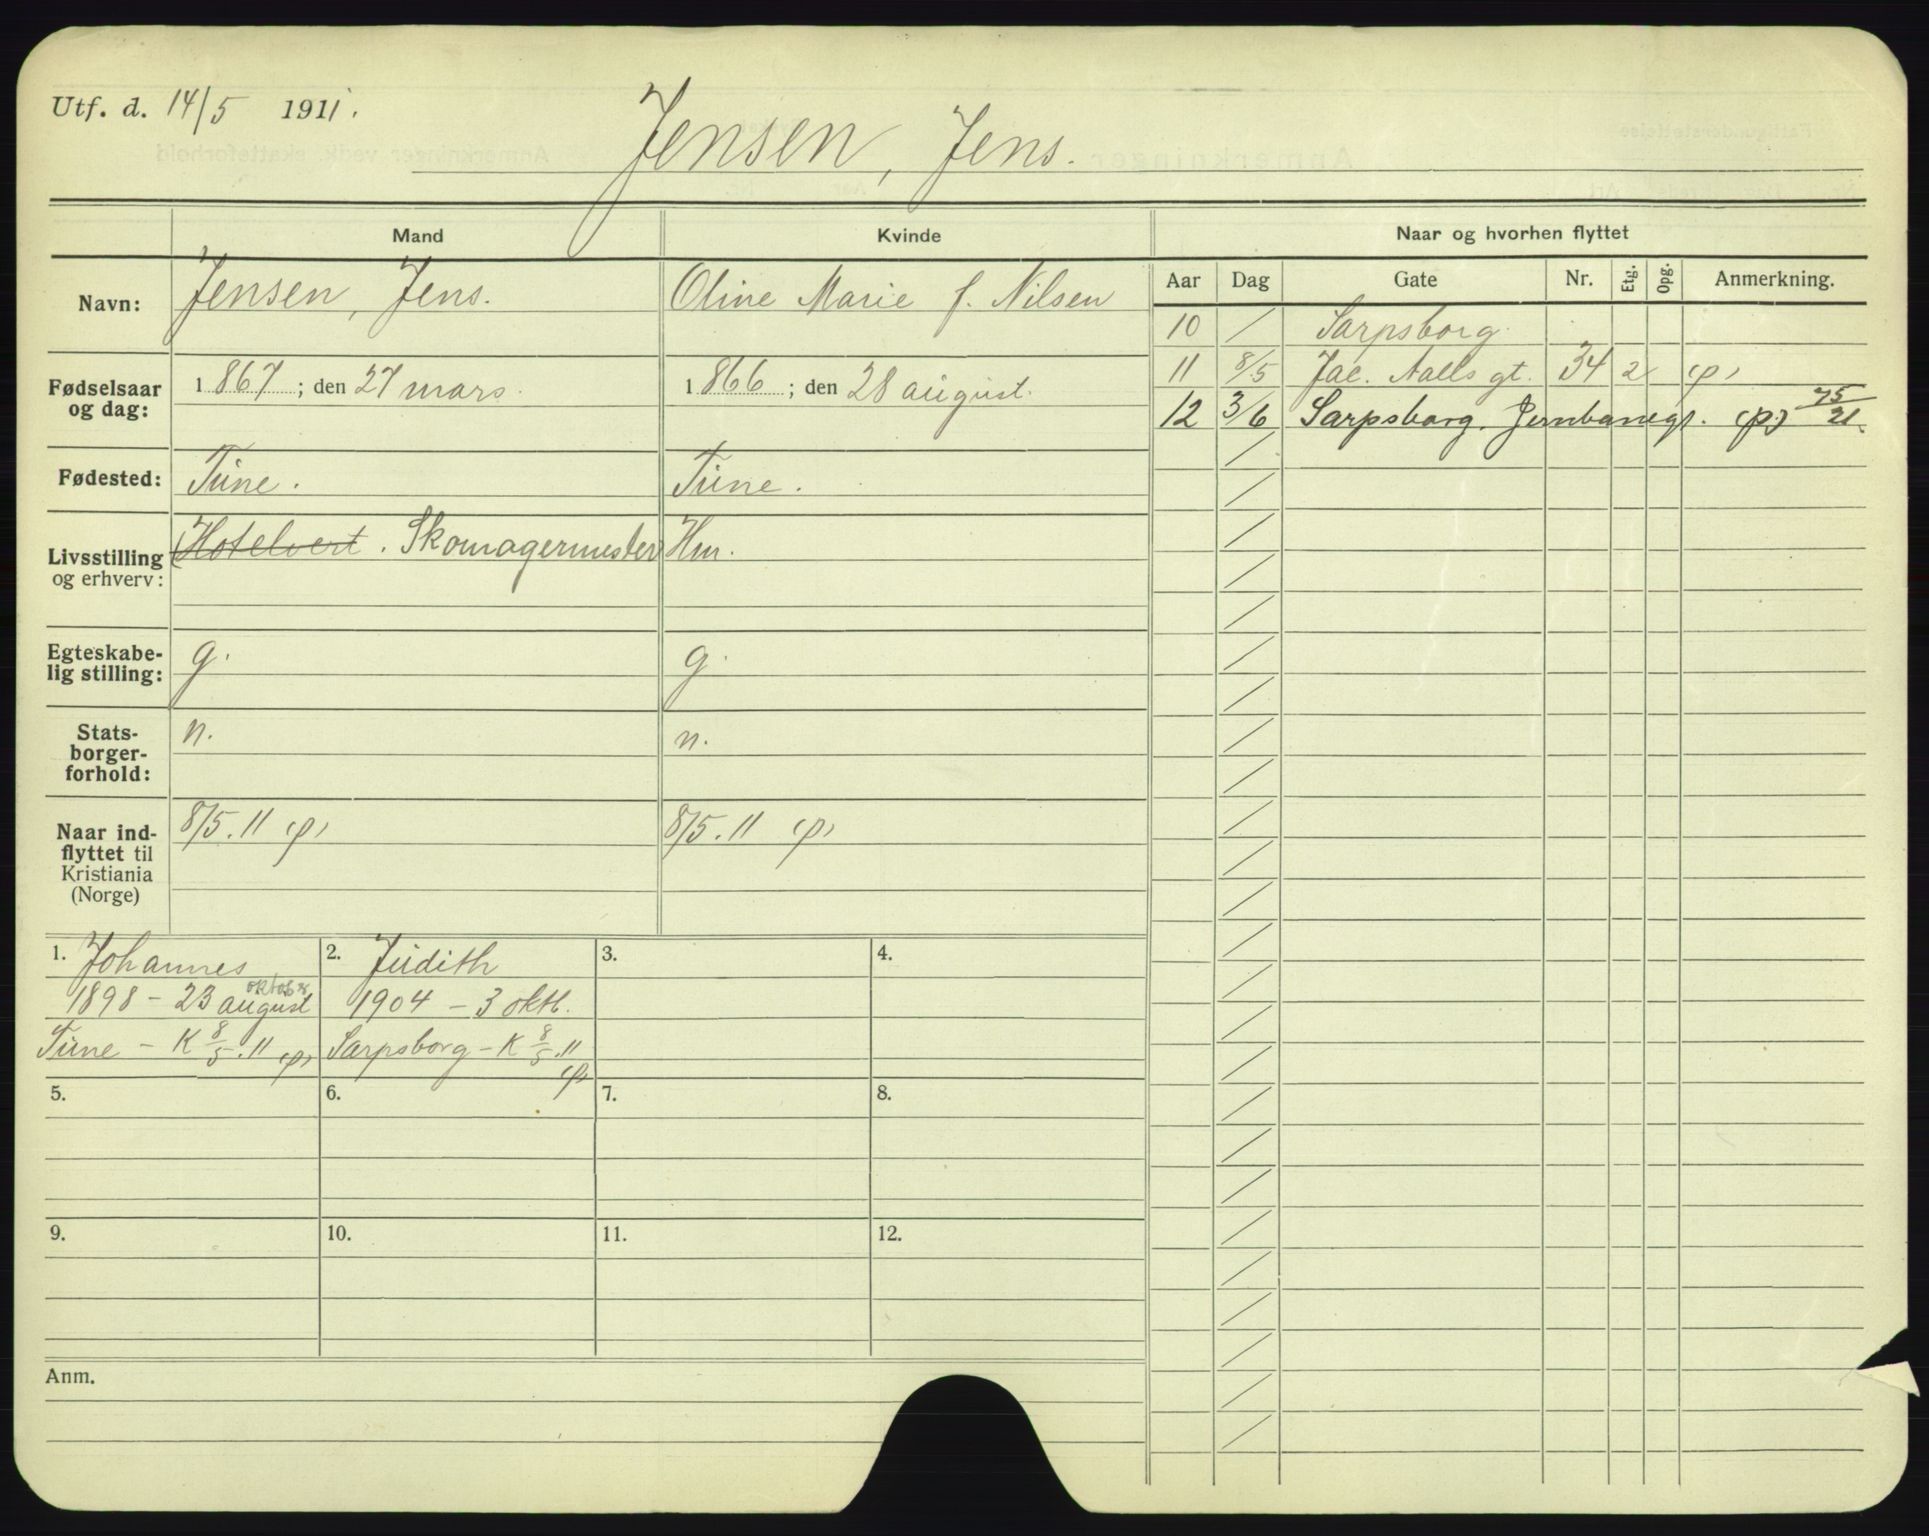 Utf. d. 14/5 1911.
Jensen, Jens.
Mand Kvinde Naar og hvorhen flyttet
Navn: Jensen, Jens. Oline Marie f. Nilsen
Fødselsaar og dag: 1867; den 27 mars. 1866; den 28 august.
Fødested: Tune. Tune.
Livsstilling og erhverv: Hotelvert. Skomagermester Hm.
Egteskabe-
lig stilling: g. g.
Stats-
borger-
forhold: n. n.
Naar ind-
flyttet til
Kristiania
(Norge) 8/5.11 (p) 8/5.11 (p)
Aar Dag Gate Nr. Etg. Opg. Anmerkning.
10 / Sarpsborg.
11 8/5 Jac. Aalls gt. 34 2 (p)
12 3/6 Sarpsborg. Jernbanegt. (p) 75/21.
1. Johannes
oktober
1898 - 23 august
Tune - K 8/5.11 (p)
2. Judith
1904 - 3 oktb.
Sarpsborg - K 8/5.11
(p)
3.
4.
5.
6.
7.
8.
9.
10.
11.
12.
Anm.